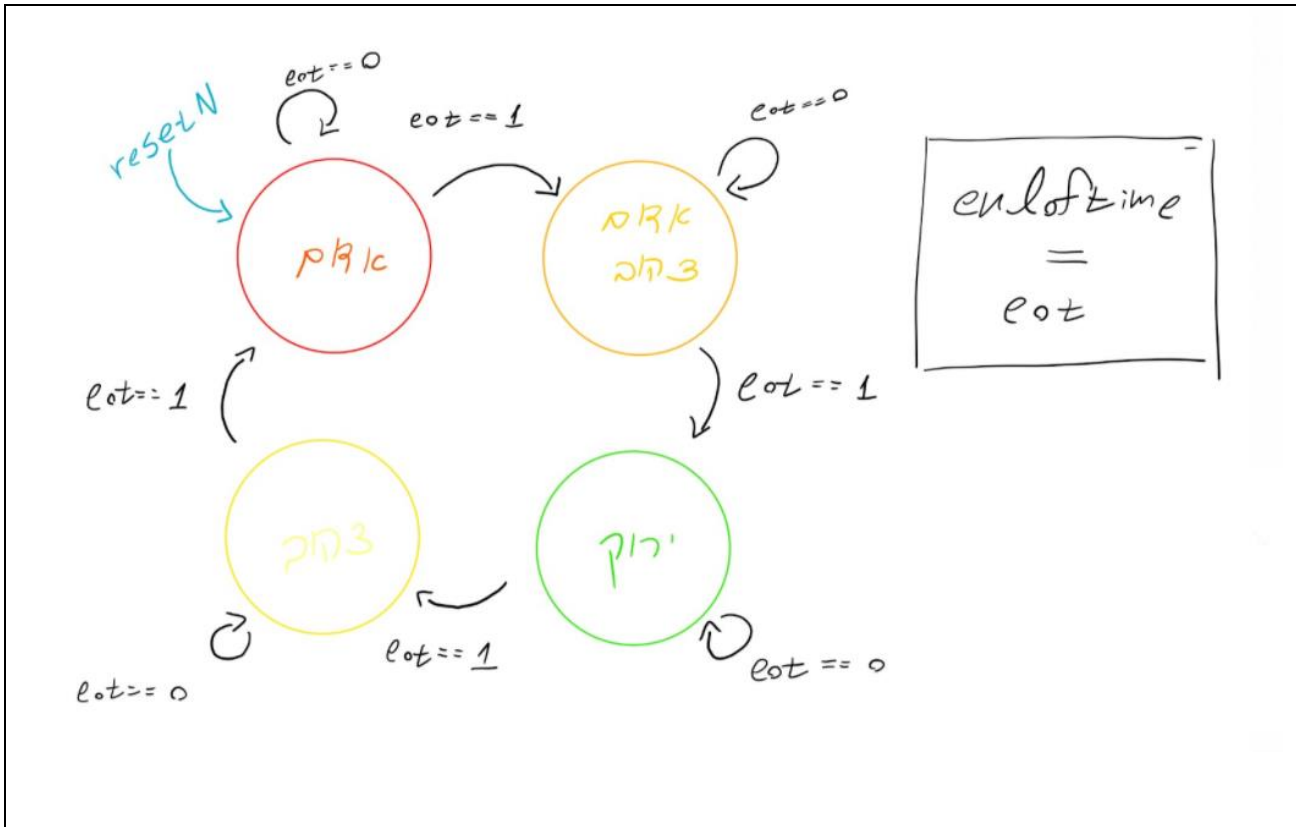 eot == 0
resetN
eot == 1
eot == 0
אדום
אדום
צהוב
endoftime
=
eot
eot == 1
eot == 1
צהוב
ירוק
eot == 0
eot == 1
eot == 0